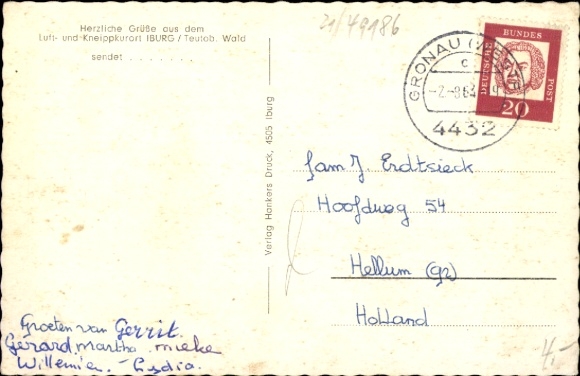 Herzliche Grüße aus dem
Luft- und Kneippkurort IBURG / Teutob. Wald
sendet . . . . . . .
21/49186
GRONAU (WESTF)
c
-2.-8.63
4432
DEUTSCHE BUNDES POST
20
Verlag Hankers Druck, 4505 Iburg
fam J. Erdtsieck
Hoofdweg 54
Hellum (gr)
Holland
Groeten van Gerrit.
Gerard, Martha mieke
Willemien. - Lydia.
4,-